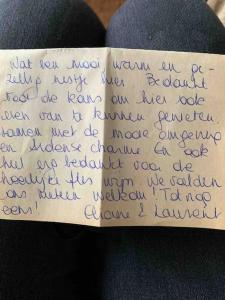 Wat een mooi warm en ge-
zellig nestje hier. Bedankt
voor de kans om hier ook
even van te kunnen genieten.
samen met de mooie omgeving
en Ardense charme. En ook
heel erg bedankt voor de
heerlijke fles wijn. We voelden
ons meteen welkom! Tot nog
eens!
& Laurent